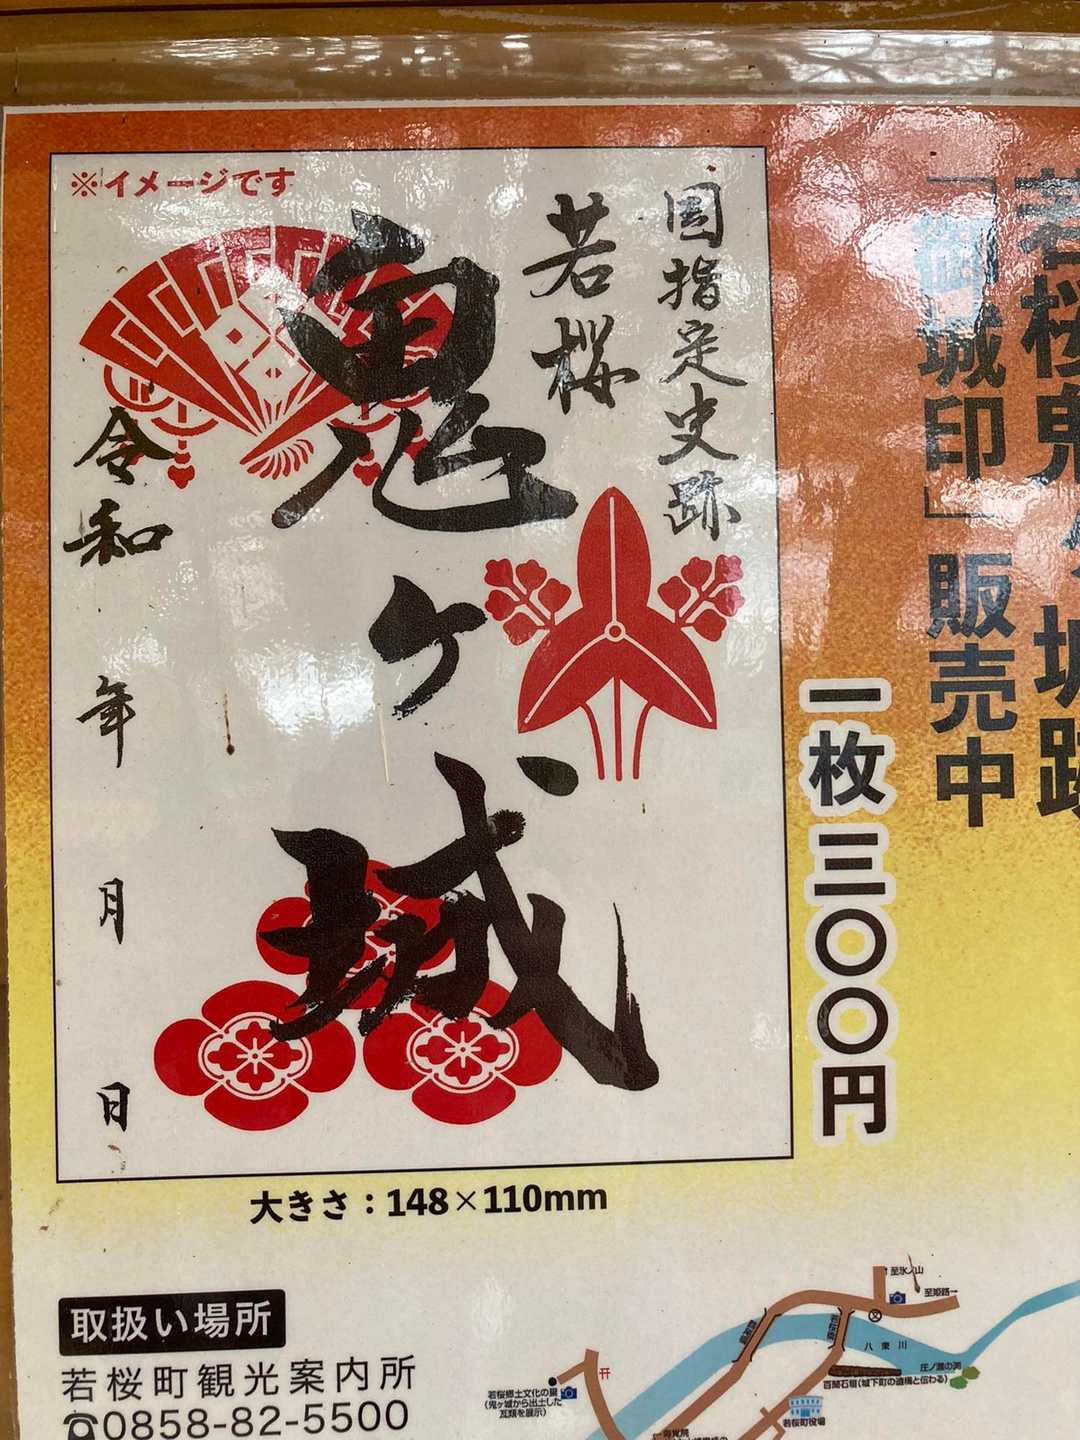 若桜鬼ヶ城跡
「御城印」販売中
一枚三〇〇円
※イメージです
国指定史跡
若桜
鬼ヶ城
令和 年 月 日
大きさ：148×110mm
取扱い場所
若桜町観光案内所
☎0858-82-5500
至氷ノ山
至姫路→
若桜橋
八東川
庄ノ瀬の渕
百間石垣(城下町の遺構と伝わる)
若桜郷土文化の里
(鬼ヶ城から出土した
瓦類を展示)
若桜町役場